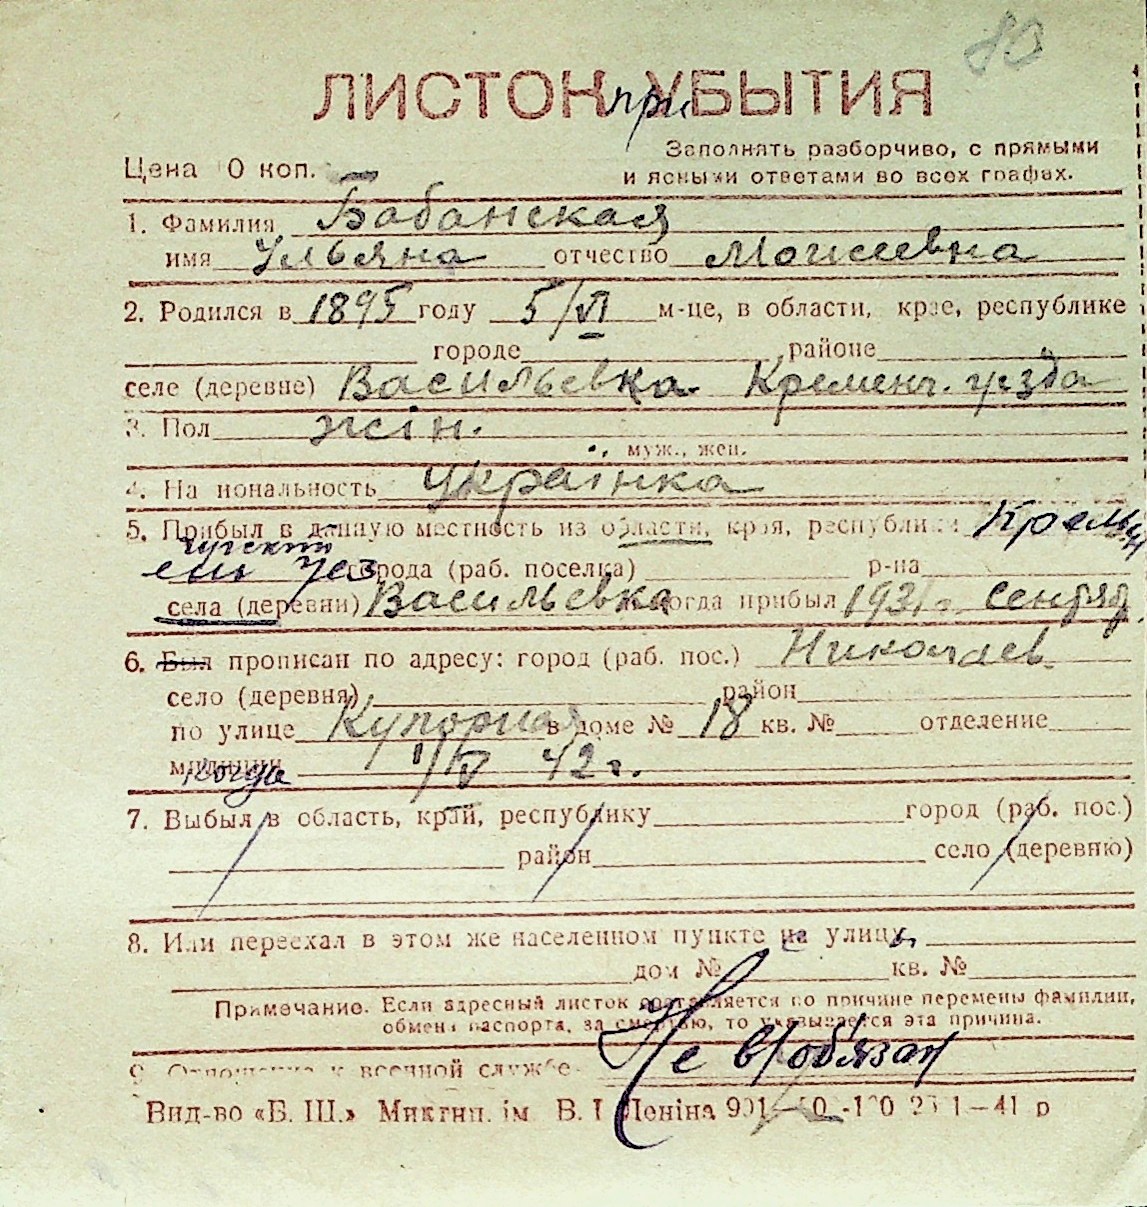 80
ЛИСТОК при УБЫТИЯ
Заполнять разборчиво, с прямыми
Цена 10 коп. и ясными ответами во всех графах.
1. Фамилия Бабанская
имя Ульяна отчество Моисеевна
2. Родился в 1895 году 5/VI м-це, в области, крае, республике
городе районе
селе (деревне) Васильевка Кременч. уезда
3. Пол жін.
муж., жен.
4. Национальность Українка
5. Прибыл в данную местность из области, края, республики Кремен
чугский
уез города (раб. поселка) р-на
села (деревни) Васильевка когда прибыл 1931 г. Сентяб.
6. Был прописан по адресу: город (раб. пос.) Николаев
село (деревня) район
по улице Купорная в доме № 18 кв. № отделение
милиции когда 1/IV 42 г.
7. Выбыл в область, край, республику город (раб. пос.)
район село (деревню)
8. Или переехал в этом же населенном пункте на улицу,
дом № кв. №
Примечание. Если адресный листок составляется по причине перемены фамилии,
обмена паспорта, за смертью, то указывается эта причина.
9. Отношение к военной службе Не в/обязан
Вид-во «Б. Ш.» Микгип. ім. В. І. Леніна 901 1—41 р